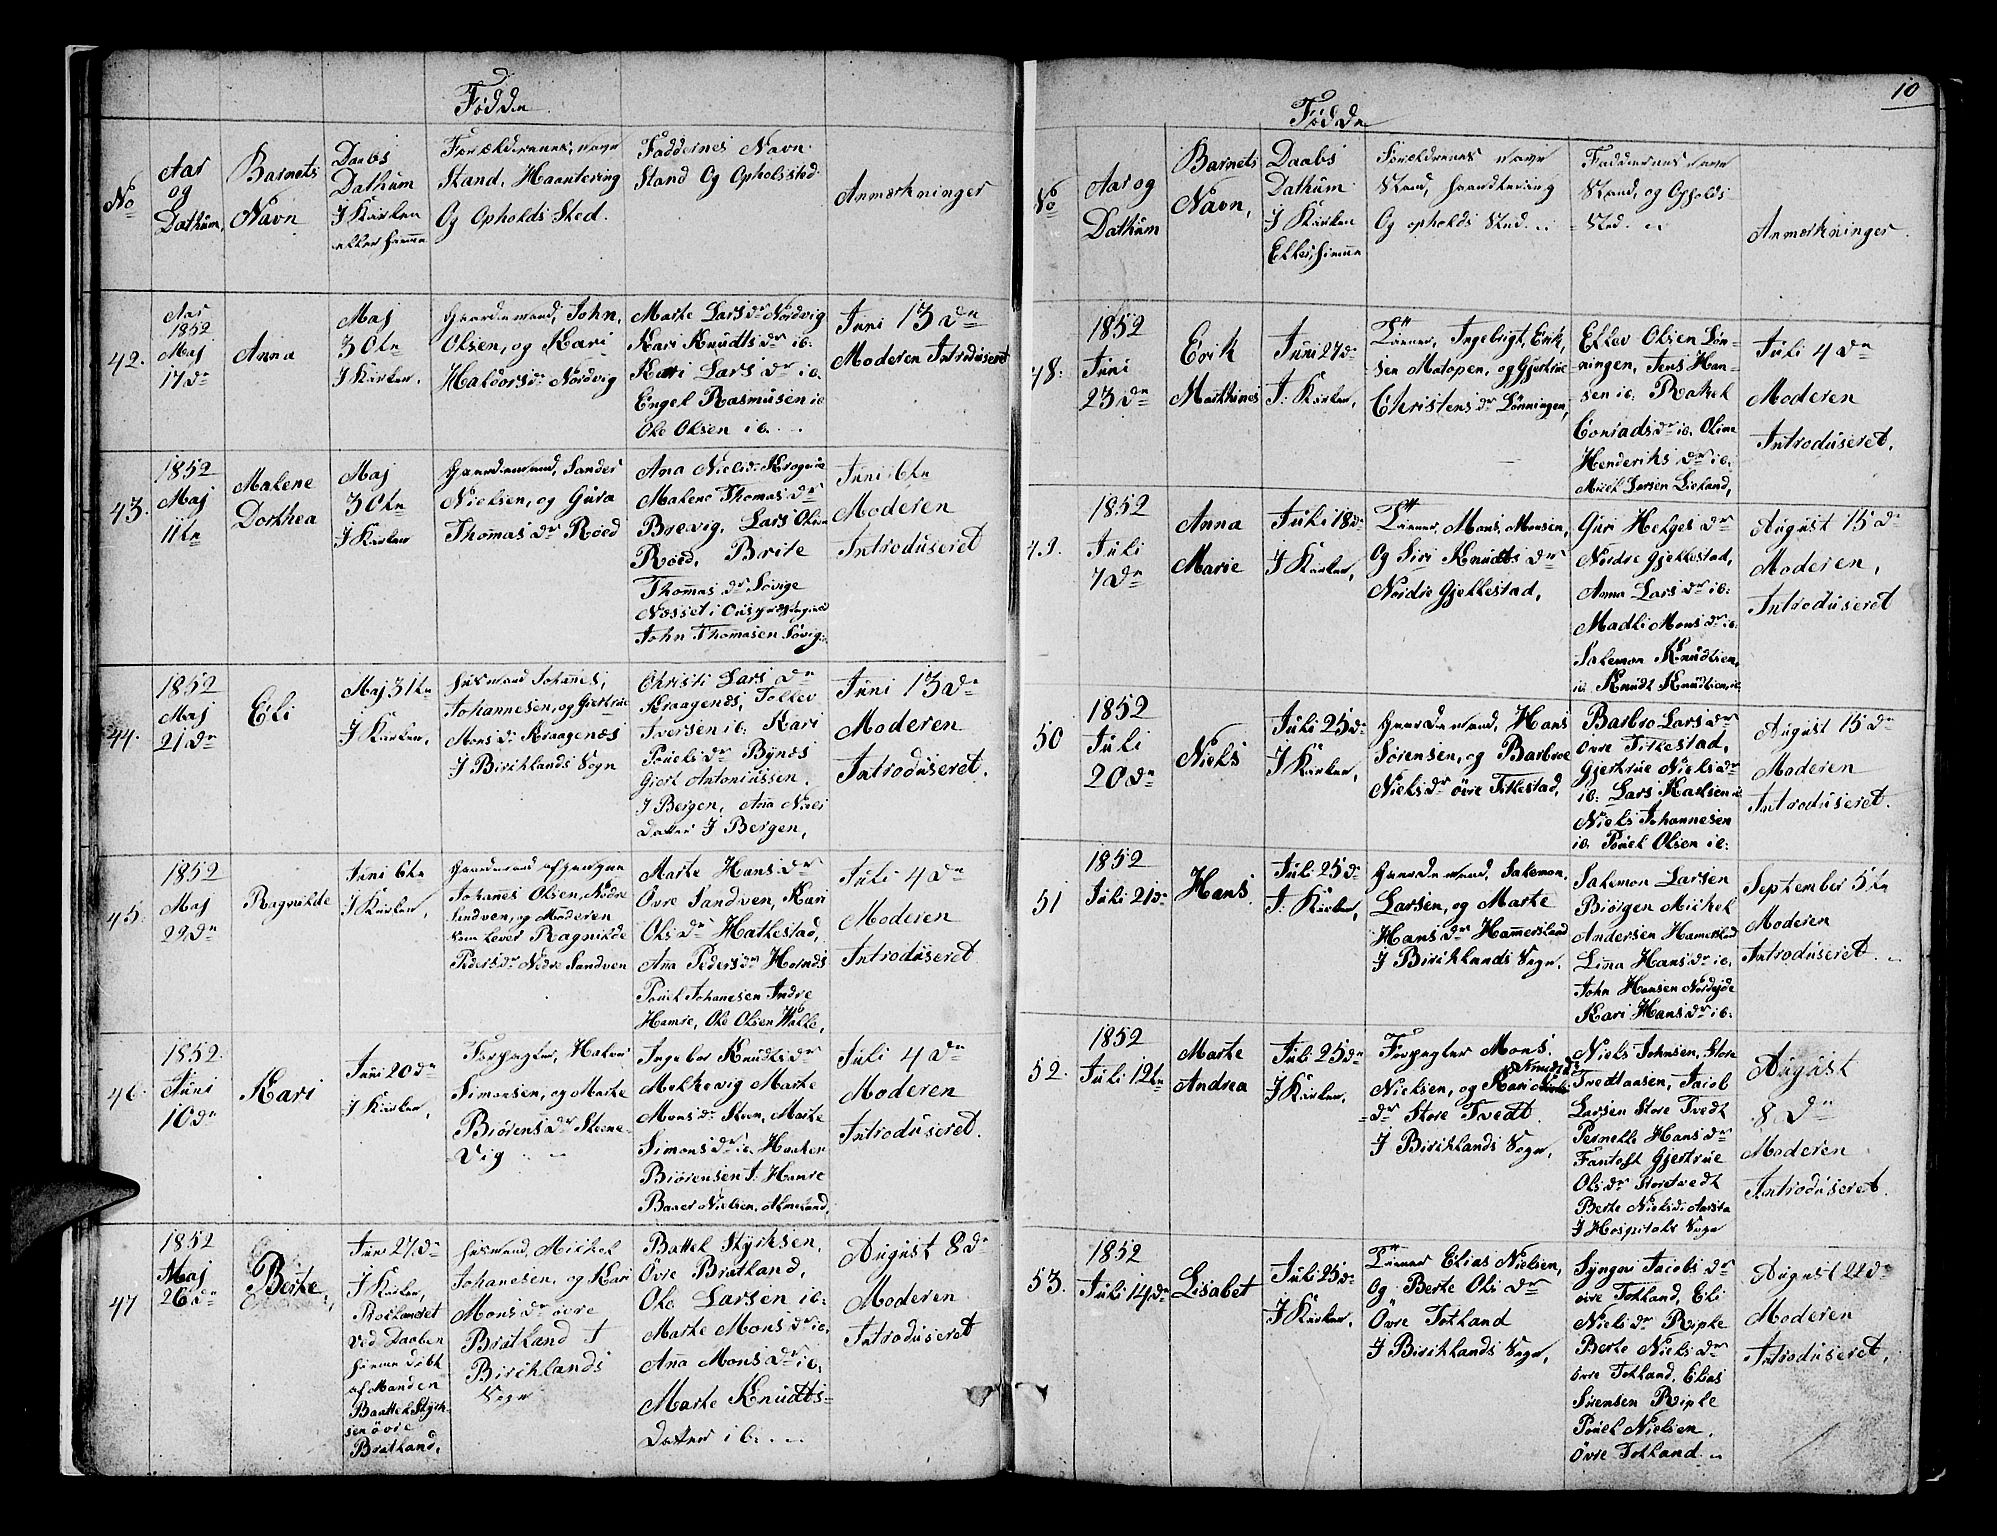 Fødde
No
Aar
og
Dathum,
Barnets
Navn
Daabs
Dathum
I Kirken
eller hiemme
Forældrenes, navn
Stand, Haantering
Og Opholds Sted.
Faddernes Navn
Stand Og Opholsted
Anmærkninger
42.
Aar
1852
Maj
17de
Anna
Maj
30te
I Kirken,
Gaardemand, John,
Olsen, og Kari
Haldorsdr Nordvig
Marte Larsdr Nordvig
Kari Knudtsdr ib.
Kari Larsdr ib.
Engel Rasmusen ib
Ole Olsen ib.
Juni 13de
Moderen Introduseret
43.
1852
Maj
11te
Malene
Dorthea
Maj
30te
I Kirken
Gaardemand, Sander
Nielsen, og Gura
Thomasdr Roed
Ana Nielsdr
Malene Thomasdr
Brevig, Lars Olsen
Roed, Brite
Thomasdr Søvige
Næsset i
John Thomasen Søvig
Juni 6te
Moderen
Introduseret
44.
1852
Maj
21de
Eli
Maj 31te
I Kirken,
Husmand Johannes,
Johannesen, og Giertrue
Monsdr Kraagenæs
I Birchlands Sogn
Christi Larsdr
Kraagenæs, Tollev
Iversen ib. Kari
Pouelsdr Bynæs
Giert Antoniussen.
I Bergen, Ana Niels
Datter I Bergen,
Juni 13de
Moderen
Introduseret.
45.
1852
Maj
29de
Ragnilde
Juni 6te
I Kirken,
Gaardmand afgangne
Johanes Olsen, Nedre
Sandven, og Moderen
som lever Ragnilde
Pedersdr Nedre Sandven
Marte Hansdr
Øvre Sandven, Kari
Olsdr Hatlestad,
Ana Pedersdr Hornæs
Pouel Johanesen Indre
Hamre, Ole Olsen Hølle,
Juli 4de
Moderen
Introduseret
46.
1852
Juni
10de
Kari
Juni 20de
I Kirken,
Forpagter, Halvor
Simonsen, og Marte
Biørensdr Steene-
Vig
Ingebor Knudtsdr
Melkevig Marte
Monsdr Steen, Marte
Simonsdr ib. Haaken
Biørensen I. Hamre
Baaer Nielsen,
Juli 4de
Moderen
Introduseret.
47
1852
Maj
26de
Berte,
Juni 27de
I Kirken,
ved Daaben
hiemme døbt
af Manden
Baattel Styrk-
sen øvre
Bratland,
Husmand, Mickel
Johanesen, og Kari
Monsdr øvre
Bratland I
Birchlands
Sogn
Battel Styrksen,
Øvre Bratland,
Ole Larsen ib:
Marte Monsdr ib.
Ana Monsdr ib:
Marte Knudts-
Datter ib.
August 8de
Moderen
Introduseret
10
Fødde
No
Aar og
Dathum
Barnets
Navn,
Daabs
Dathum
I Kirken
Eller, hiemme
Forældrenes navn
Stand, haandtering
Og opholds Sted.
Faddernes navn
Stand, og Opholds
Sted.
Anmærkninger
48.
1852
Juni
23de
Erik
Marthines
Juni 27de
I. Kirken,
Ingebrigt, Erik,
sen Matopen, og Gjertrue
Christensdr Lønningen,
Ellev Olsen Løn-
ningen, Jens Han-
sen ib. Rakel
Conradsdr ib. Oline
Henderiksdr ib.
Mikel Larsen Lieland,
Juli 4de
Moderen
Introduseret.
49.
1852
Juli
7de
Anna
Marie
Juli 18de
I Kirken,
Mons, Monsen,
Og Siri Knudtsdr
Nordre Gjellestad,
Guri Helgesdr
Nordre Gjellestad,
Anna Larsdr ib:
Madli Monsdr ib:
Salemon Knudtsen,
ib Knudt Knudtsen, ib
August 15de
Moderen,
Introduseret
50
1852
Juli
20de
Niels
Juli 25de
I Kirken,
Gaardemand, Hans
Sørensen, og Barbroe
Nielsdr øvre Titlestad,
Barbro Larsdr
Øvre Titlestad,
Gjertrue Nielsdr
ib. Lars Karlsen ib
Niels Johannesen
ib. Pouel Olsen ib:
August 15de
Moderen
Introduseret.
51
1852
Juli 21de
Hans
Juli 25de
I. Kirken,
Gaardemand, Salemon,
Larsen, og Marte
Hansdr Hammersland
I Birchlands Sogn,
Salemon Larsen
Biørgen Michel
Andersen Hamersland
Lina Hansdr ib:
John Hansen Nordejde
Kari Hansdr ib:
September 5te
Moderen
Introduseret.
52.
1852
Juli 12te
Marte
Andrea
Juli 25de
I Kirken,
Forpagter Mons,
Nielsen, og Kari
dr Store Tvedt
I Birchlands Sogn,
Niels Johnsen, Store
Tvedtaasen, Jacob
Larsen Store Tvedt
Pernelle Hansdr
Fantoft Gjertrue
Olsdr Storetvedt
Berte Nielsdr Aarsta
I Hospitals Sogn
August
8de
Moderen
Introduseret.
53.
1852
Juli 14de
Lisabet
Juli 25de
I Kirken,
Elias Nielsen,
Og Berte Olsdr
Øvre Totland
I Birchlands Sogn,
Syngni Jacobsdr
øvre Totland, Eli
Nielsdr Riple
Berte Nielsdr
øvre Totland, Elias
Sørensen Riple
Pouel Nielsen,
Øvre Totland
August 22de
Moderen
Introduseret,